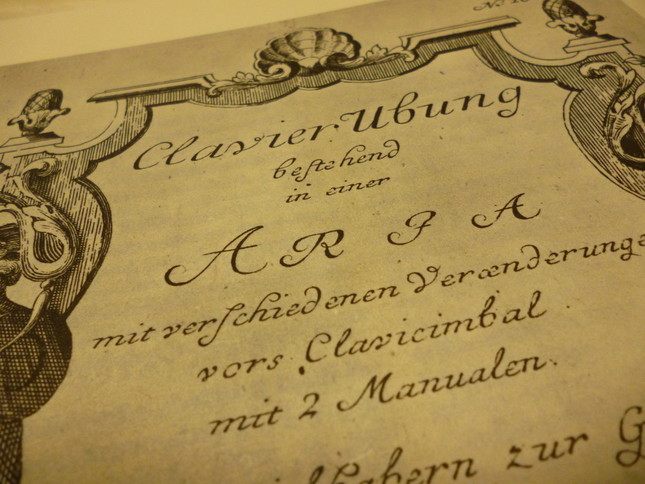 Clavier Ubung
bestehend
in einer
ARIA
mit verschiedenen Veraenderunge
vors Clavicimbal
mit 2 Manualen.
habern zur G